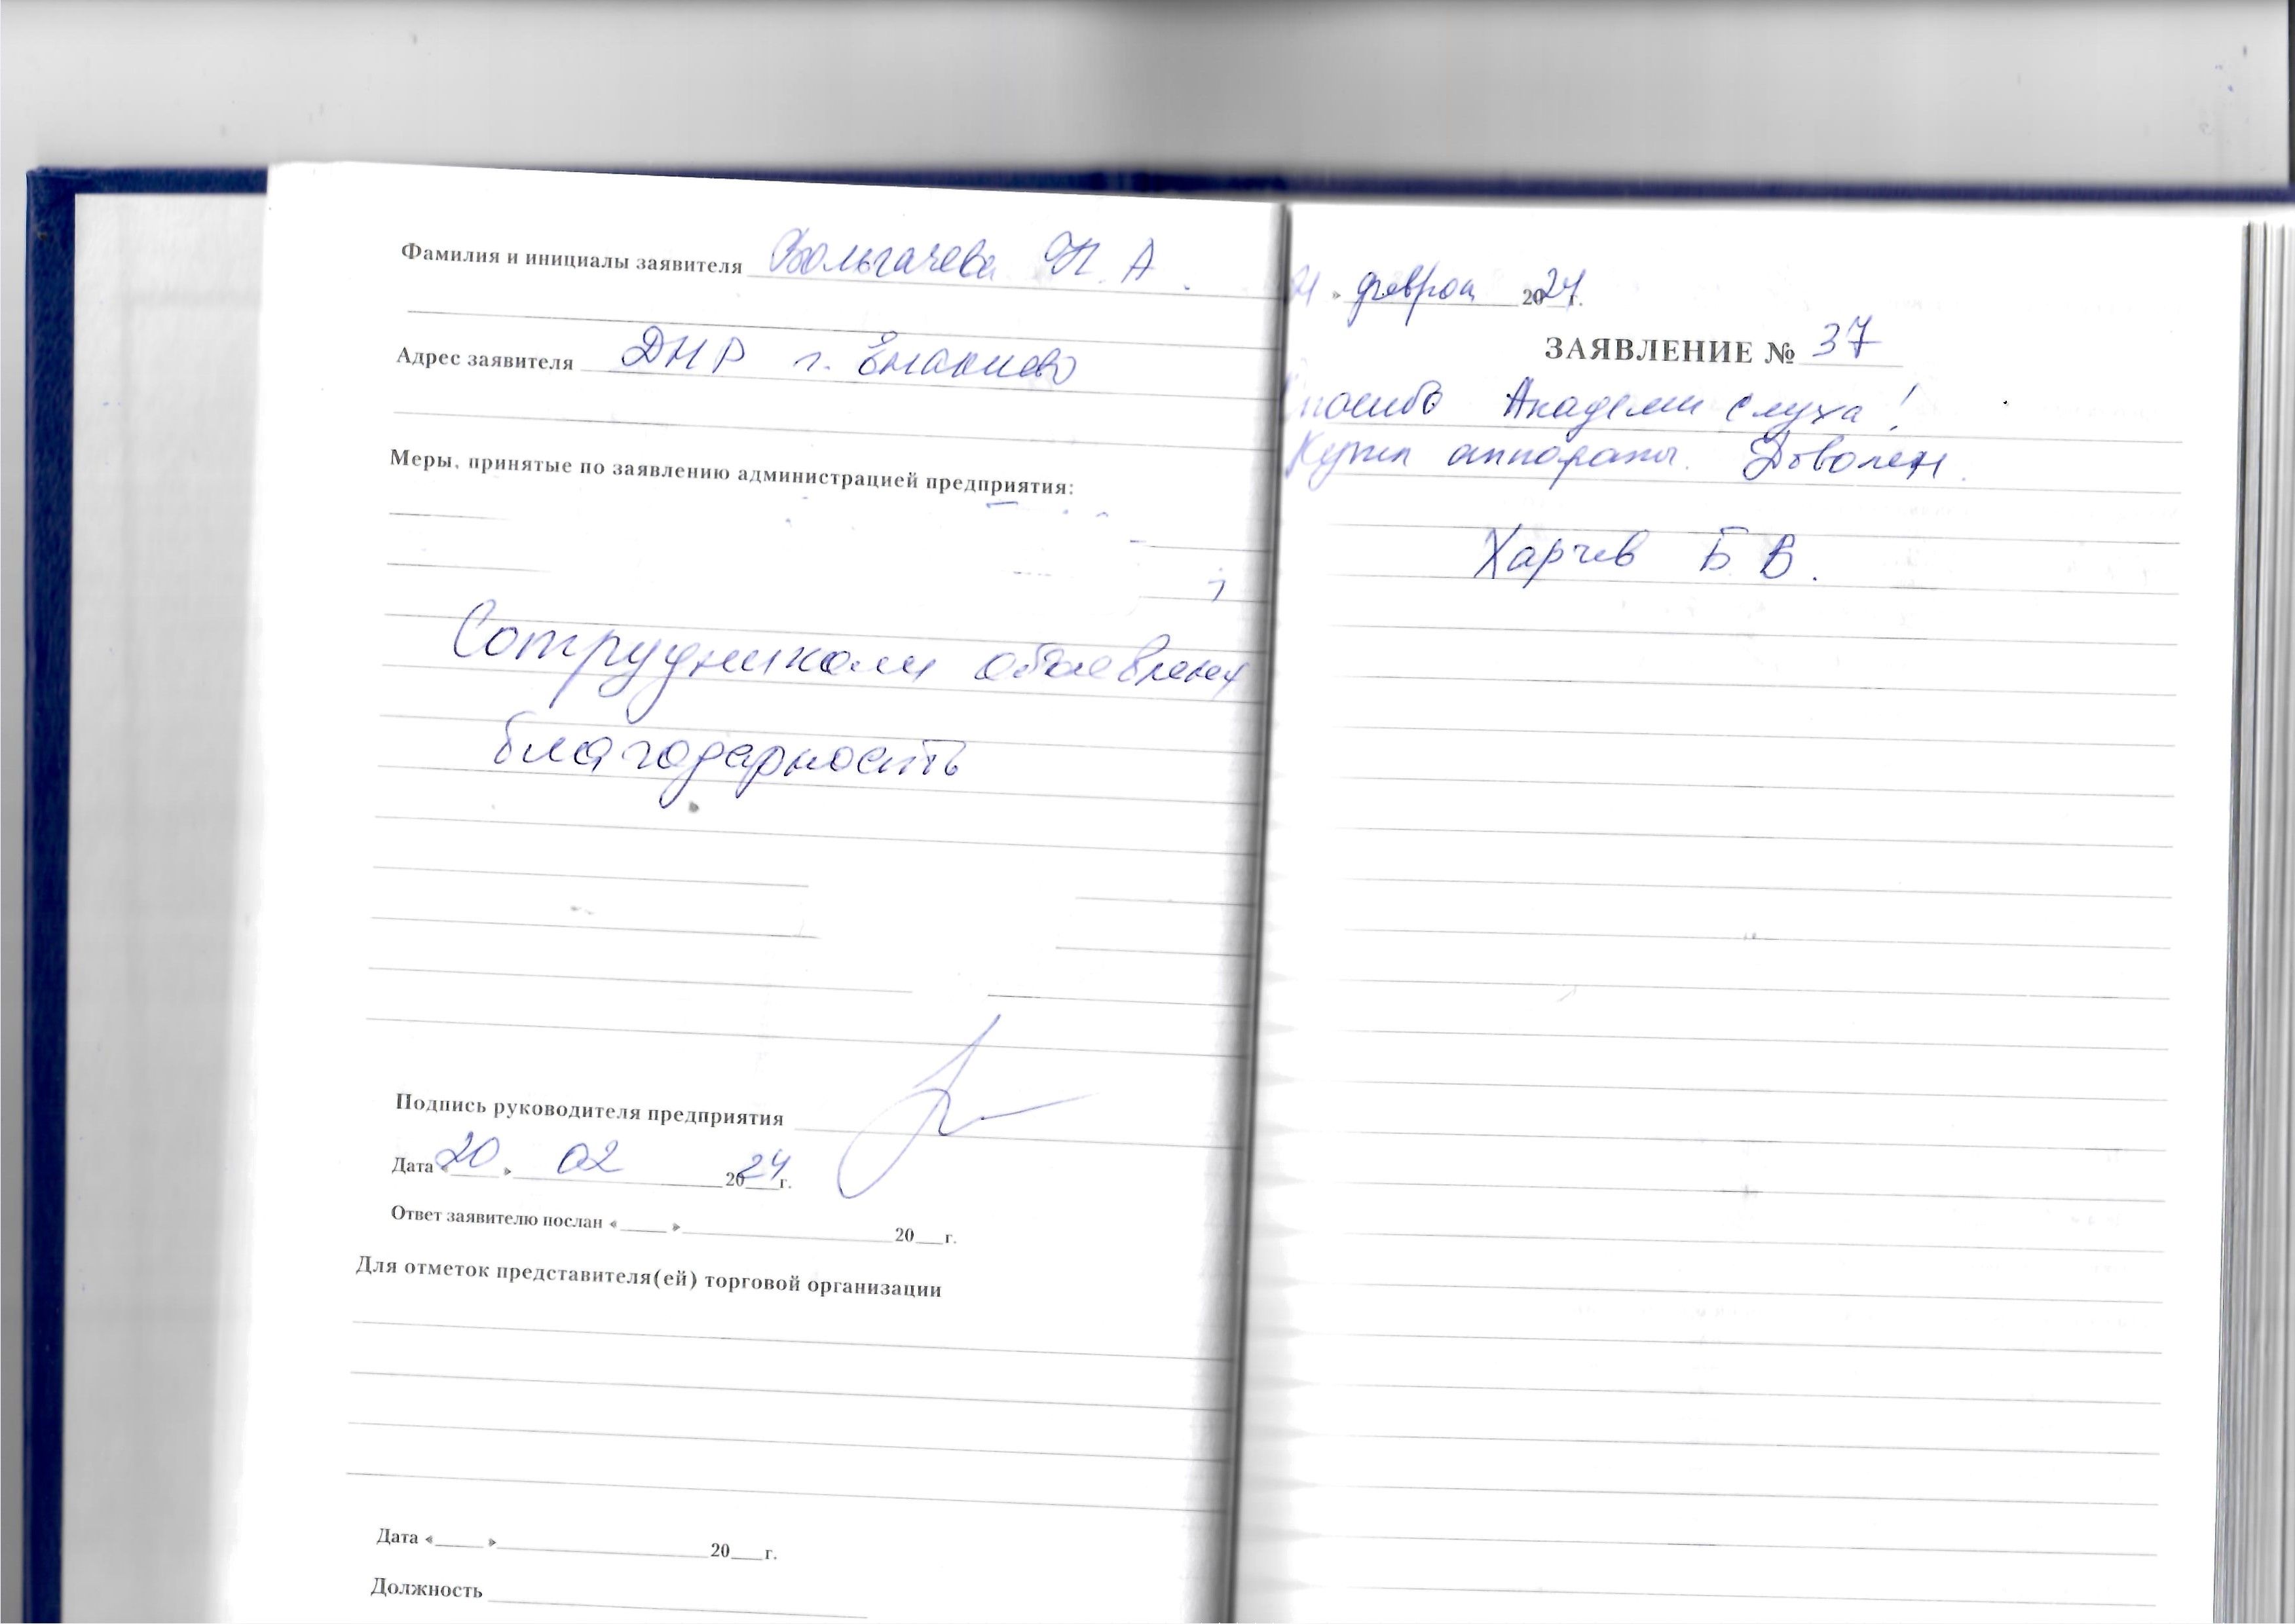 Фамилия и инициалы заявителя Н. А.
Адрес заявителя ДНР г. Енакиево
Меры, принятые по заявлению администрацией предприятия:
Сотрудникам объявлена
благодарность
Подпись руководителя предприятия
Дата «20» 02 2024г.
Ответ заявителю послан «____»____________20___г.
Для отметок представителя(ей) торговой организации
Дата «____»____________20___г.
Должность
» феврал 2024г.
ЗАЯВЛЕНИЕ № 37
Спасибо Академии слуха!
Купил аппараты. Доволен.
Харчев Б В.